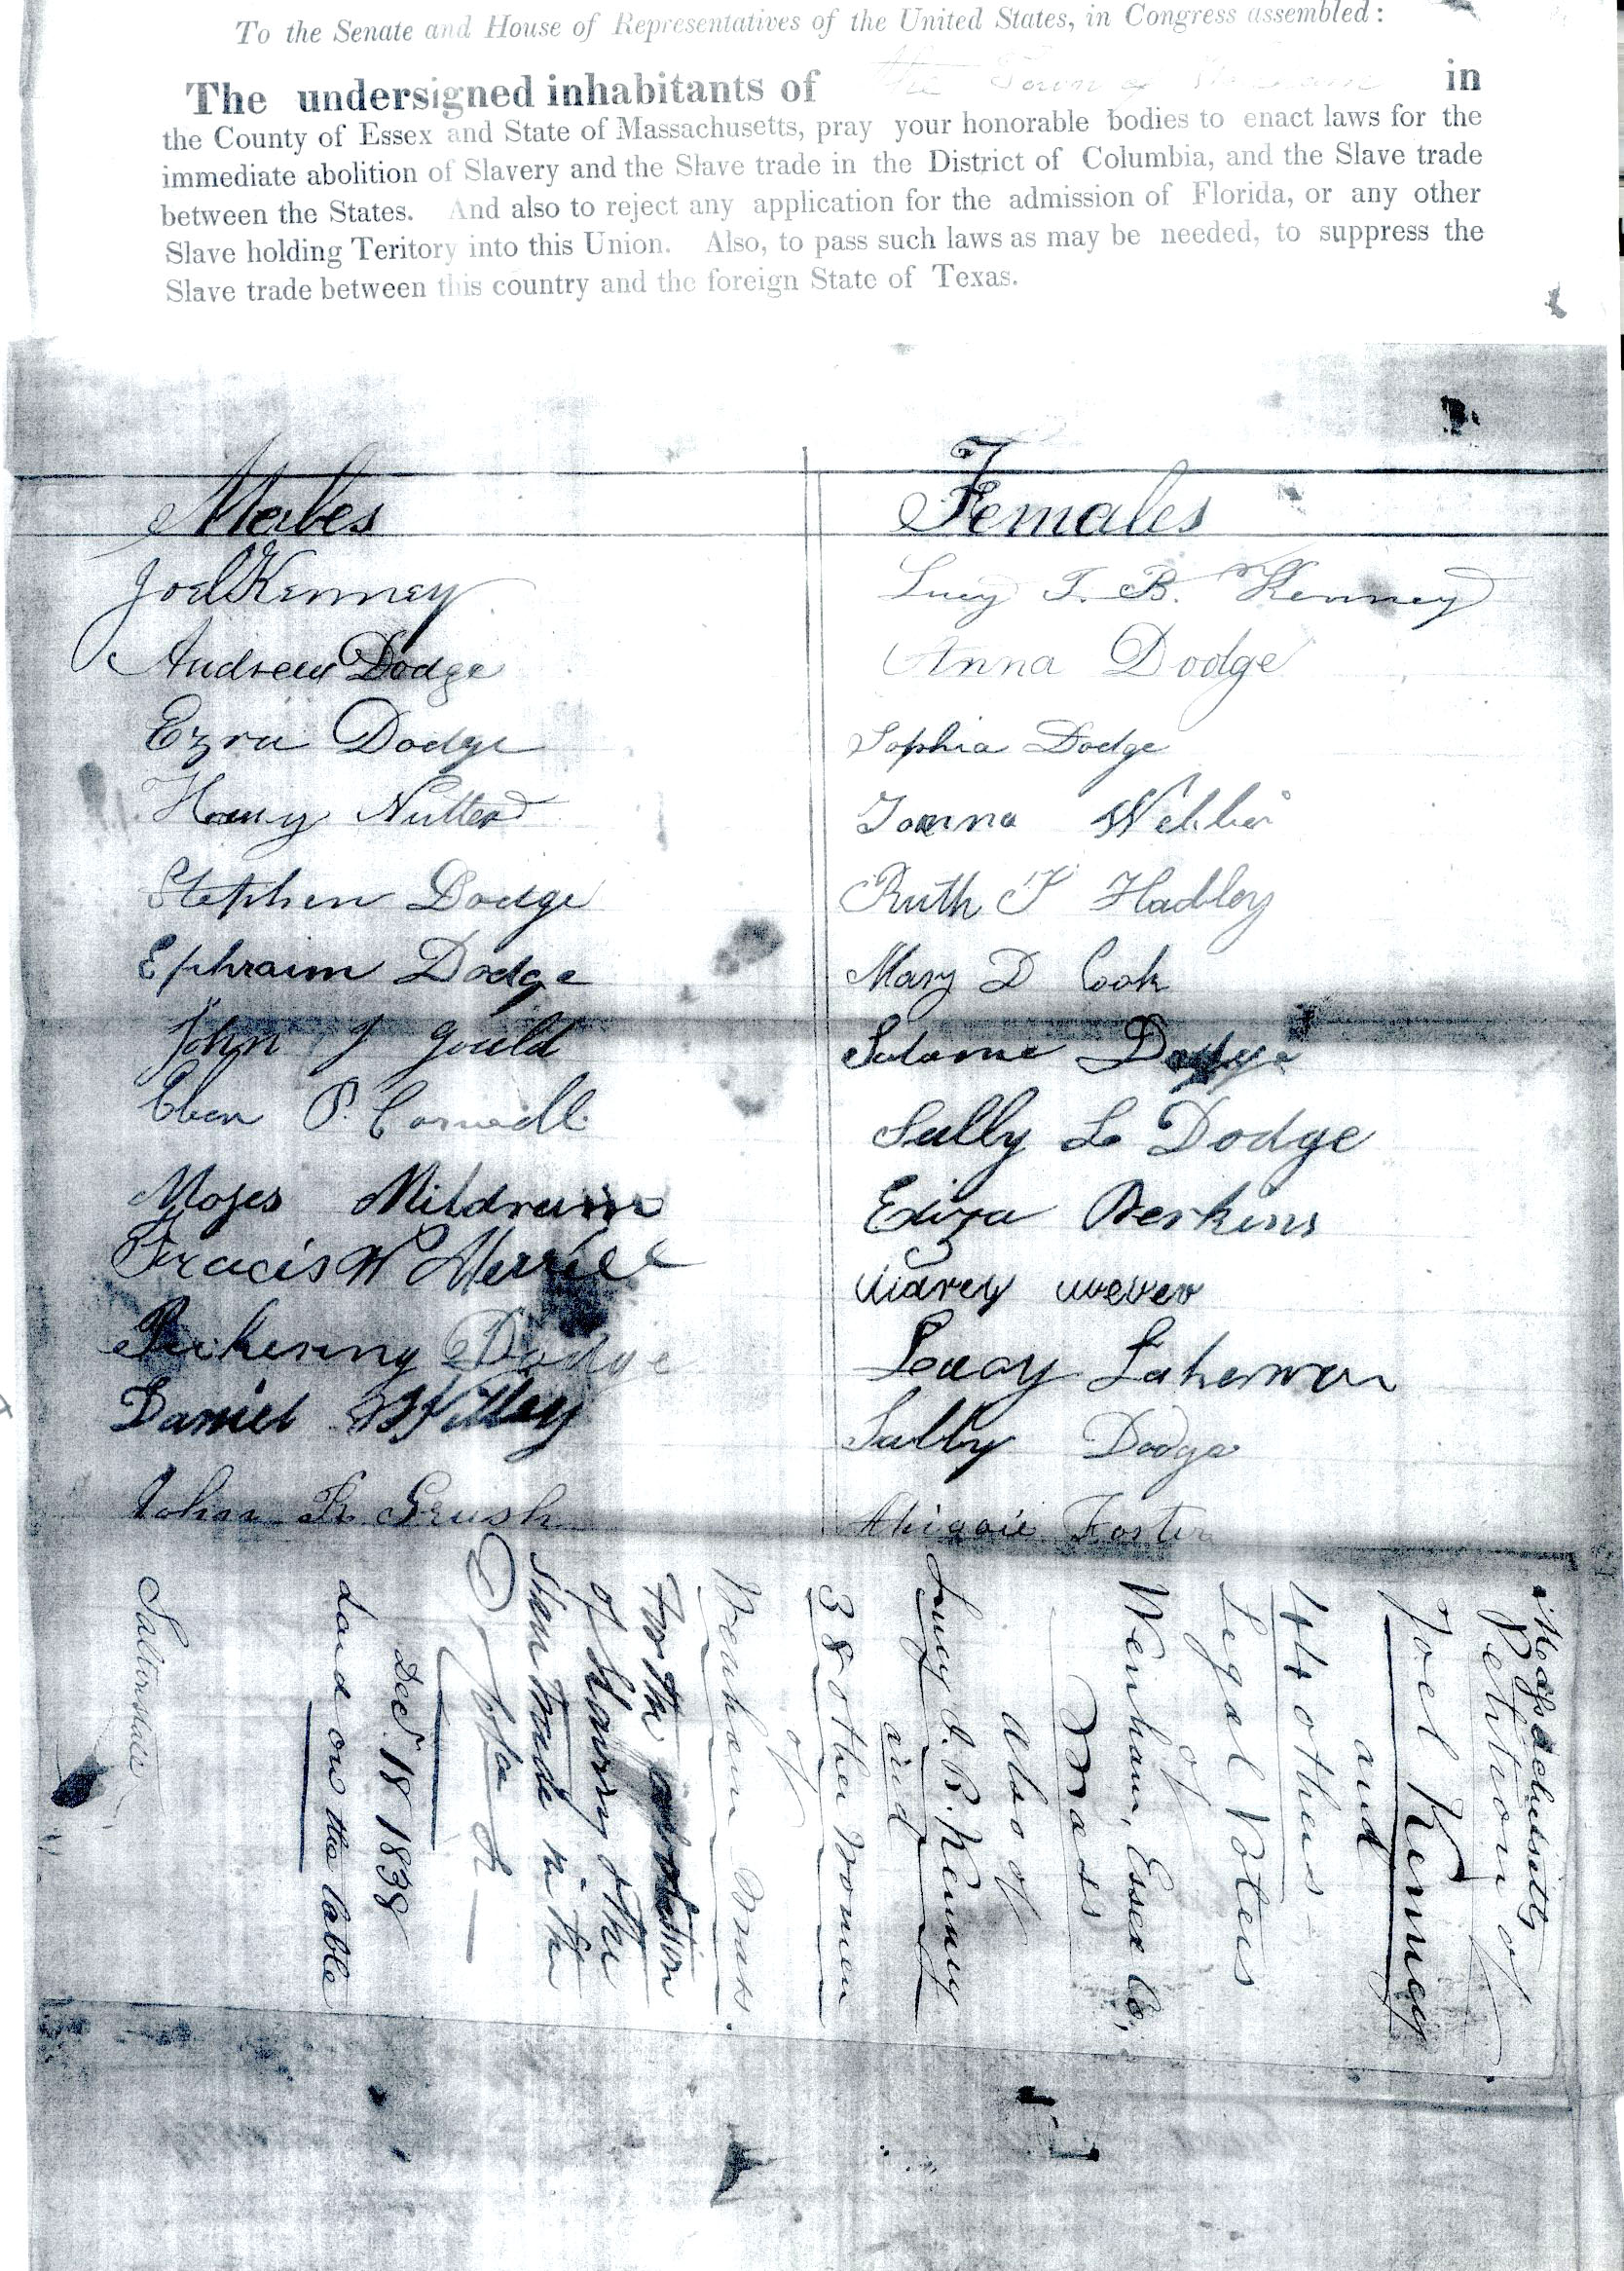 To the Senate and House of Representatives of the United States, in Congress assembled:
The undersigned inhabitants of the Town of Wenham in
the County of Essex and State of Massachusetts, pray your honorable bodies to enact laws for the
immediate abolition of Slavery and the Slave trade in the District of Columbia, and the Slave trade
between the States. And also to reject any application for the admission of Florida, or any other
Slave holding Teritory into this Union. Also, to pass such laws as may be needed, to suppress the
Slave trade between this country and the foreign State of Texas.
Males
Females
Joel Kenney
Lucy I. B. Kenney
Andrew Dodge
Anna Dodge
Ezra Dodge
Sophia Dodge
Henry Nutter
Joanna Webber
Stephen Dodge
Ruth Hadley
Ephraim Dodge
Mary D Cook
John J Gould
Salome Dodge
Eben P.
Sally L Dodge
Moses Mildrum
Eliza Perkins
Francis W Merrill
Marey
Pickering Dodge
Lucy Lakeman
Daniel
Sally Dodge
John Grush
Foster
Massachusetts
Petition of
Joel Kenney
and
44 others
Legal Voters
of
Wenham, Essex Co,
Mass
also of
Lucy I. B. Kenney
and
38 other Women
of
Wenham Mass.
For the abolition
of slavery & the
Slave trade in the
D. of
Decr 18 1838
Laid on the table
Saltonstall